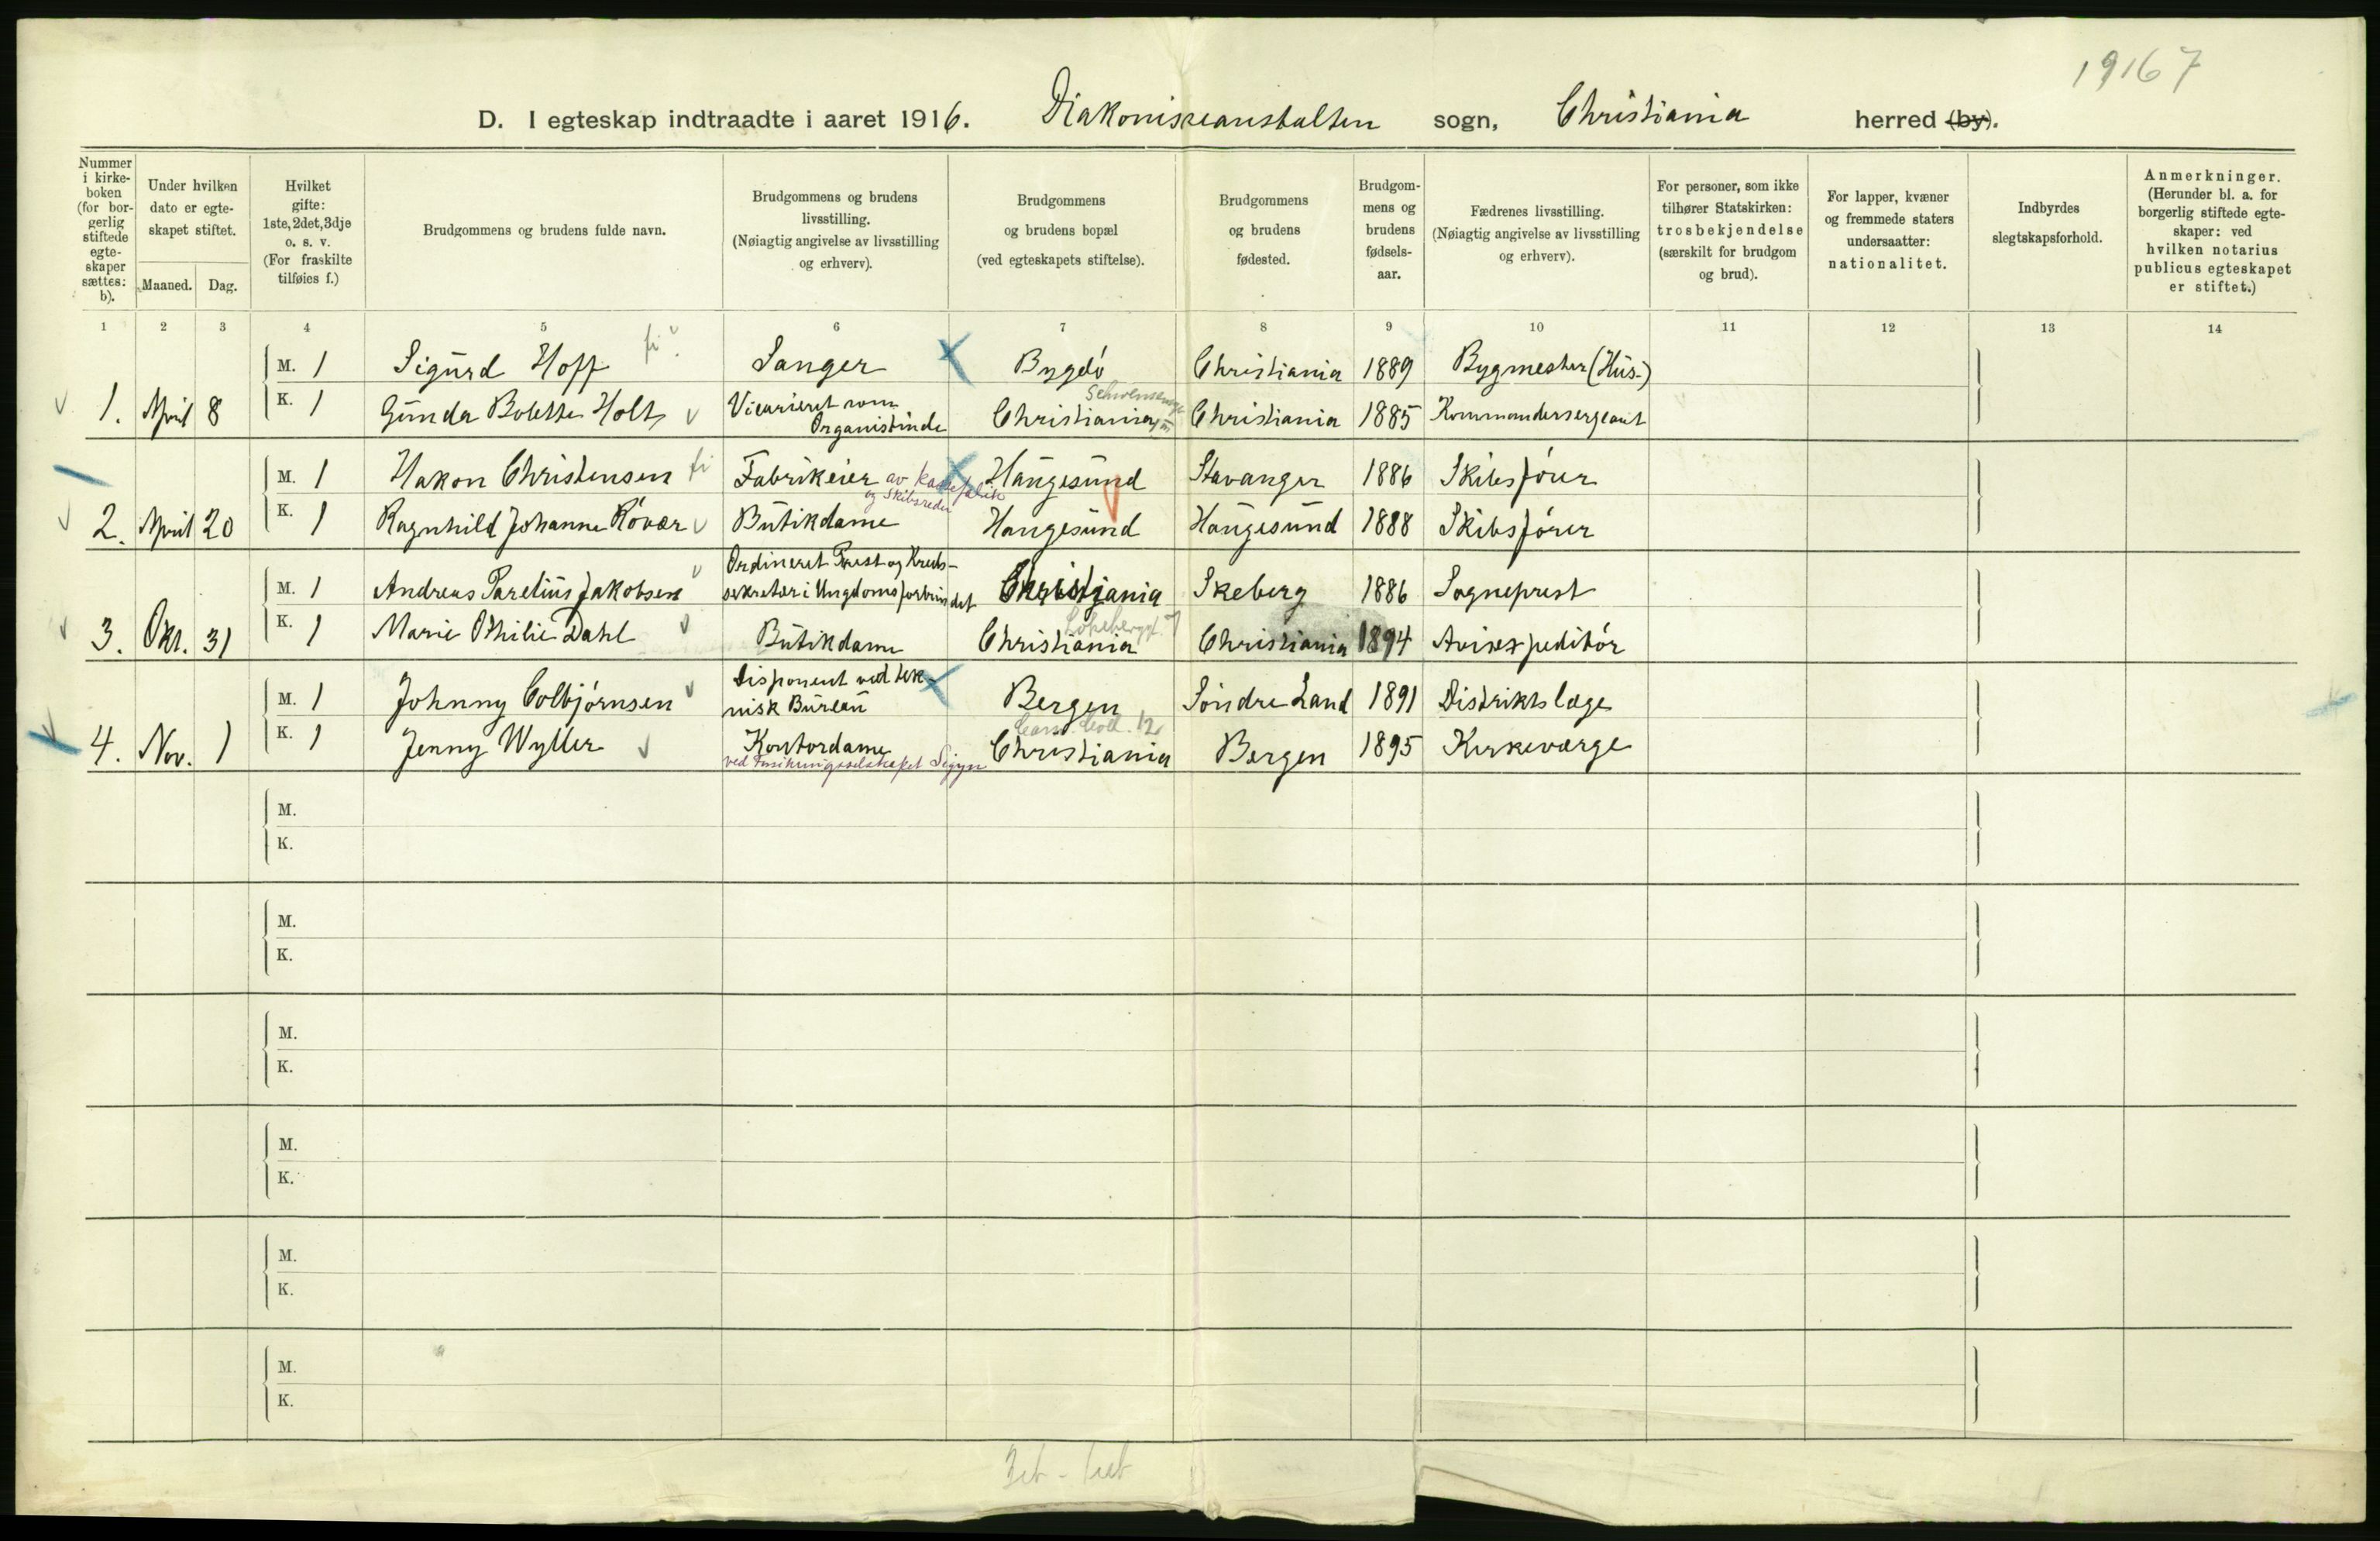 19167
D. I egteskap indtraadte i aaret 1916. Diakonisseanstalten sogn, Christiania herred (by).
Nummer i kirkeboken (for borgerlig stiftede egteskaper sættes: b).
Under hvilken dato er egteskapet stiftet.
Maaned. Dag.
Hvilket gifte: 1ste, 2det, 3dje o. s. v. (For fraskilte tilføies f.)
Brudgommens og brudens fulde navn.
Brudgommens og brudens livsstilling. (Nøiagtig angivelse av livsstilling og erhverv).
Brudgommens og brudens bopæl (ved egteskapets stiftelse).
Brudgommens og brudens fødested.
Brudgommens og brudens fødselsaar.
Fædrenes livsstilling. (Nøiagtig angivelse av livsstilling og erhverv).
For personer, som ikke tilhører Statskirken: trosbekjendelse (særskilt for brudgom og brud).
For lapper, kvæner og fremmede staters undersaatter: nationalitet.
Indbyrdes slegtskapsforhold.
Anmerkninger. (Herunder bl. a. for borgerlig stiftede egteskaper: ved hvilken notarius publicus egteskapet er stiftet.)
1 2 3 4 5 6 7 8 9 10 11 12 13 14
M. 1 Sigurd Hoff Sanger Bygdó Christiania 1889 Bygmester (Hus-)
1. April 8 K. 1 Gunda Bolette Holt Vicarieret som Organistinde Christiania Christiania 1885 Kommandersergeant
M. 1 Hakon Christensen Fabrikeier av kassefabrik og Skibsreder Haugesund Stavanger 1886 Skibsfórer
2. April 20 K. 1 Ragnhild Johanne Róvær Butikdame Haugesund Haugesund 1888 Skibsfórer
M. 1 Andreas Parelius Jakobsen Ordineret Prest og Kredssekretær i Ungdomsforbundet Christiania Skeberg 1886 Sogneprest
3. Okt. 31 K. 1 Marie Othilie Dahl Butikdame Christiania Christiania 1894 Avisexpeditór
M. 1 Johnny Colbjórnsen Disponent ved teknisk Bureau Bergen Sóndre Land 1891 Distriktslæge
4. Nov. 1 K. 1 Jenny Wyller Kontordame ved Forsikringsselskapet Sigyn Christiania Bergen 1895 Kirkeværge
M.
K.
M.
K.
M.
K.
M.
K.
M.
K.
M.
K.